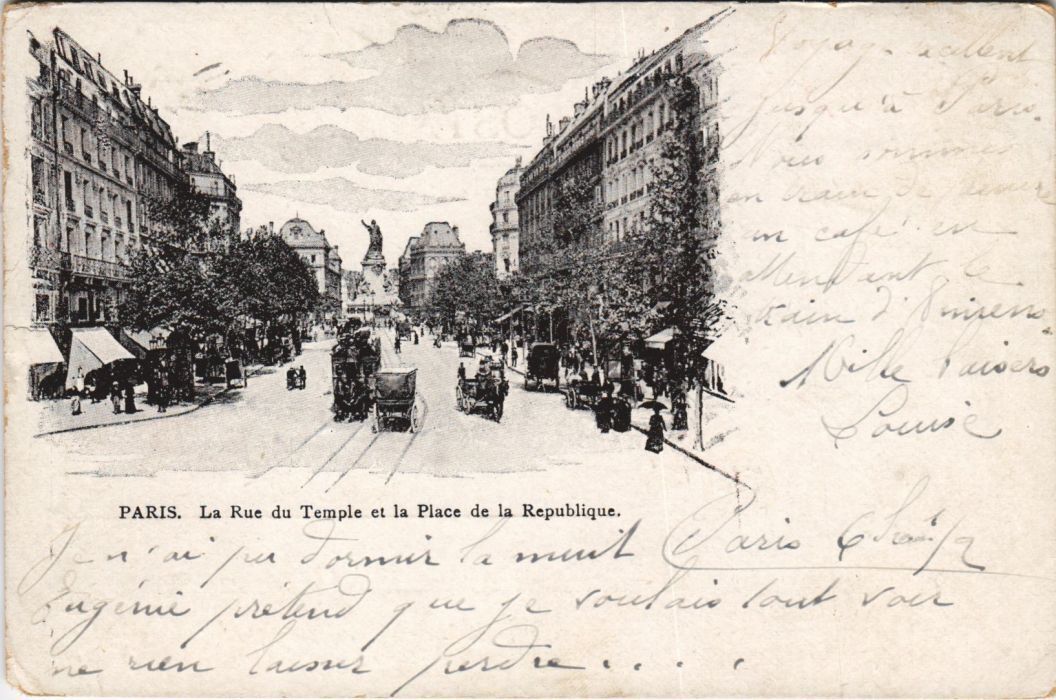 Voyage excellent
jusqu'à Paris.
Nous sommes
en train de
un café en
attendant le
train d'Amiens.
Mille baisers
Louise
PARIS. La Rue du Temple et la Place de la Republique.
Je n'ai pu dormir la nuit Paris 6h
Eugénie prétend que je voulais tout voir
ne rien laisser perdre....